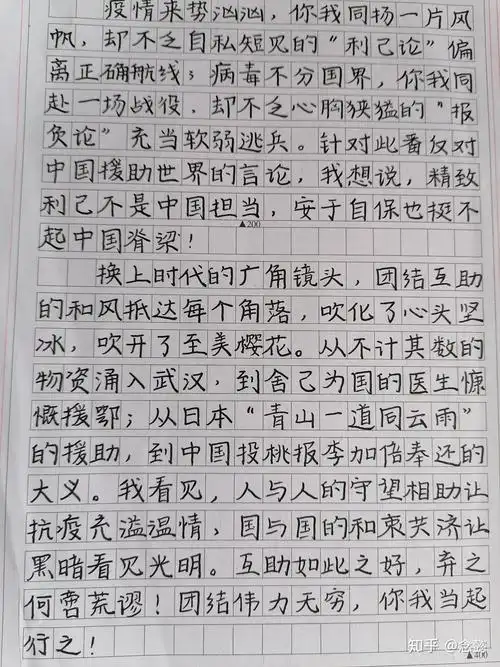 疫情来势汹汹，你我同扬一片风
帆，却不乏自私短见的“利己论”偏
离正确航线；病毒不分国界，你我同
赴一场战役，却不乏心胸狭猛的“报
负论”充当软弱逃兵。针对此番仅对
中国援助世界的言论，我想说，精致
利己不是中国担当，安于自保也挺不
▲200
起中国脊梁！
换上时代的广角镜头，团结互助
的和风抵达每个角落，吹化了心头坚
冰，吹开了至美樱花。从不计其数的
物资涌入武汉，到舍己为国的医生慷
慨援鄂；从日本“青山一道同云雨”
的援助，到中国投桃报李加倍奉还的
大义。我看见，人与人的守望相助让
抗疫充溢温情，国与国的和衷共济让
黑暗看见光明。互助如此之好，弃之
何啻荒谬！团结伟力无穷，你我当起
行之！
▲400
知乎 @念懿